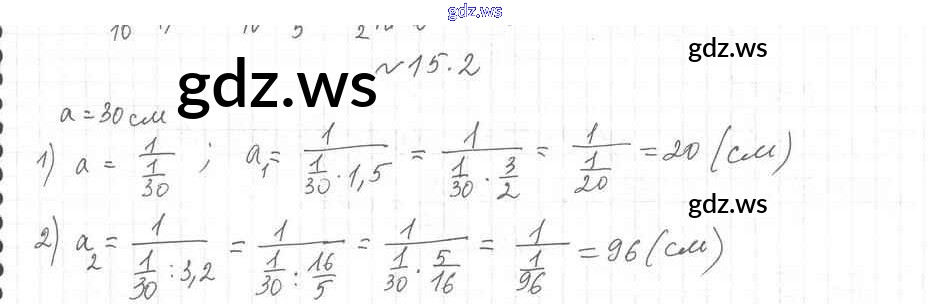 gdz.ws
10 5 2
gdz.ws
~15.2
gdz.ws
a = 30 см
1) a = 1/(1/30) ; a₁ = 1/(1/30 · 1,5) = 1/(1/30 · 3/2) = 1/(1/20) = 20 (см)
gdz.ws
2) a₂ = 1/(1/30 : 3,2) = 1/(1/30 : 16/5) = 1/(1/30 · 5/16) = 1/(1/96) = 96 (см)